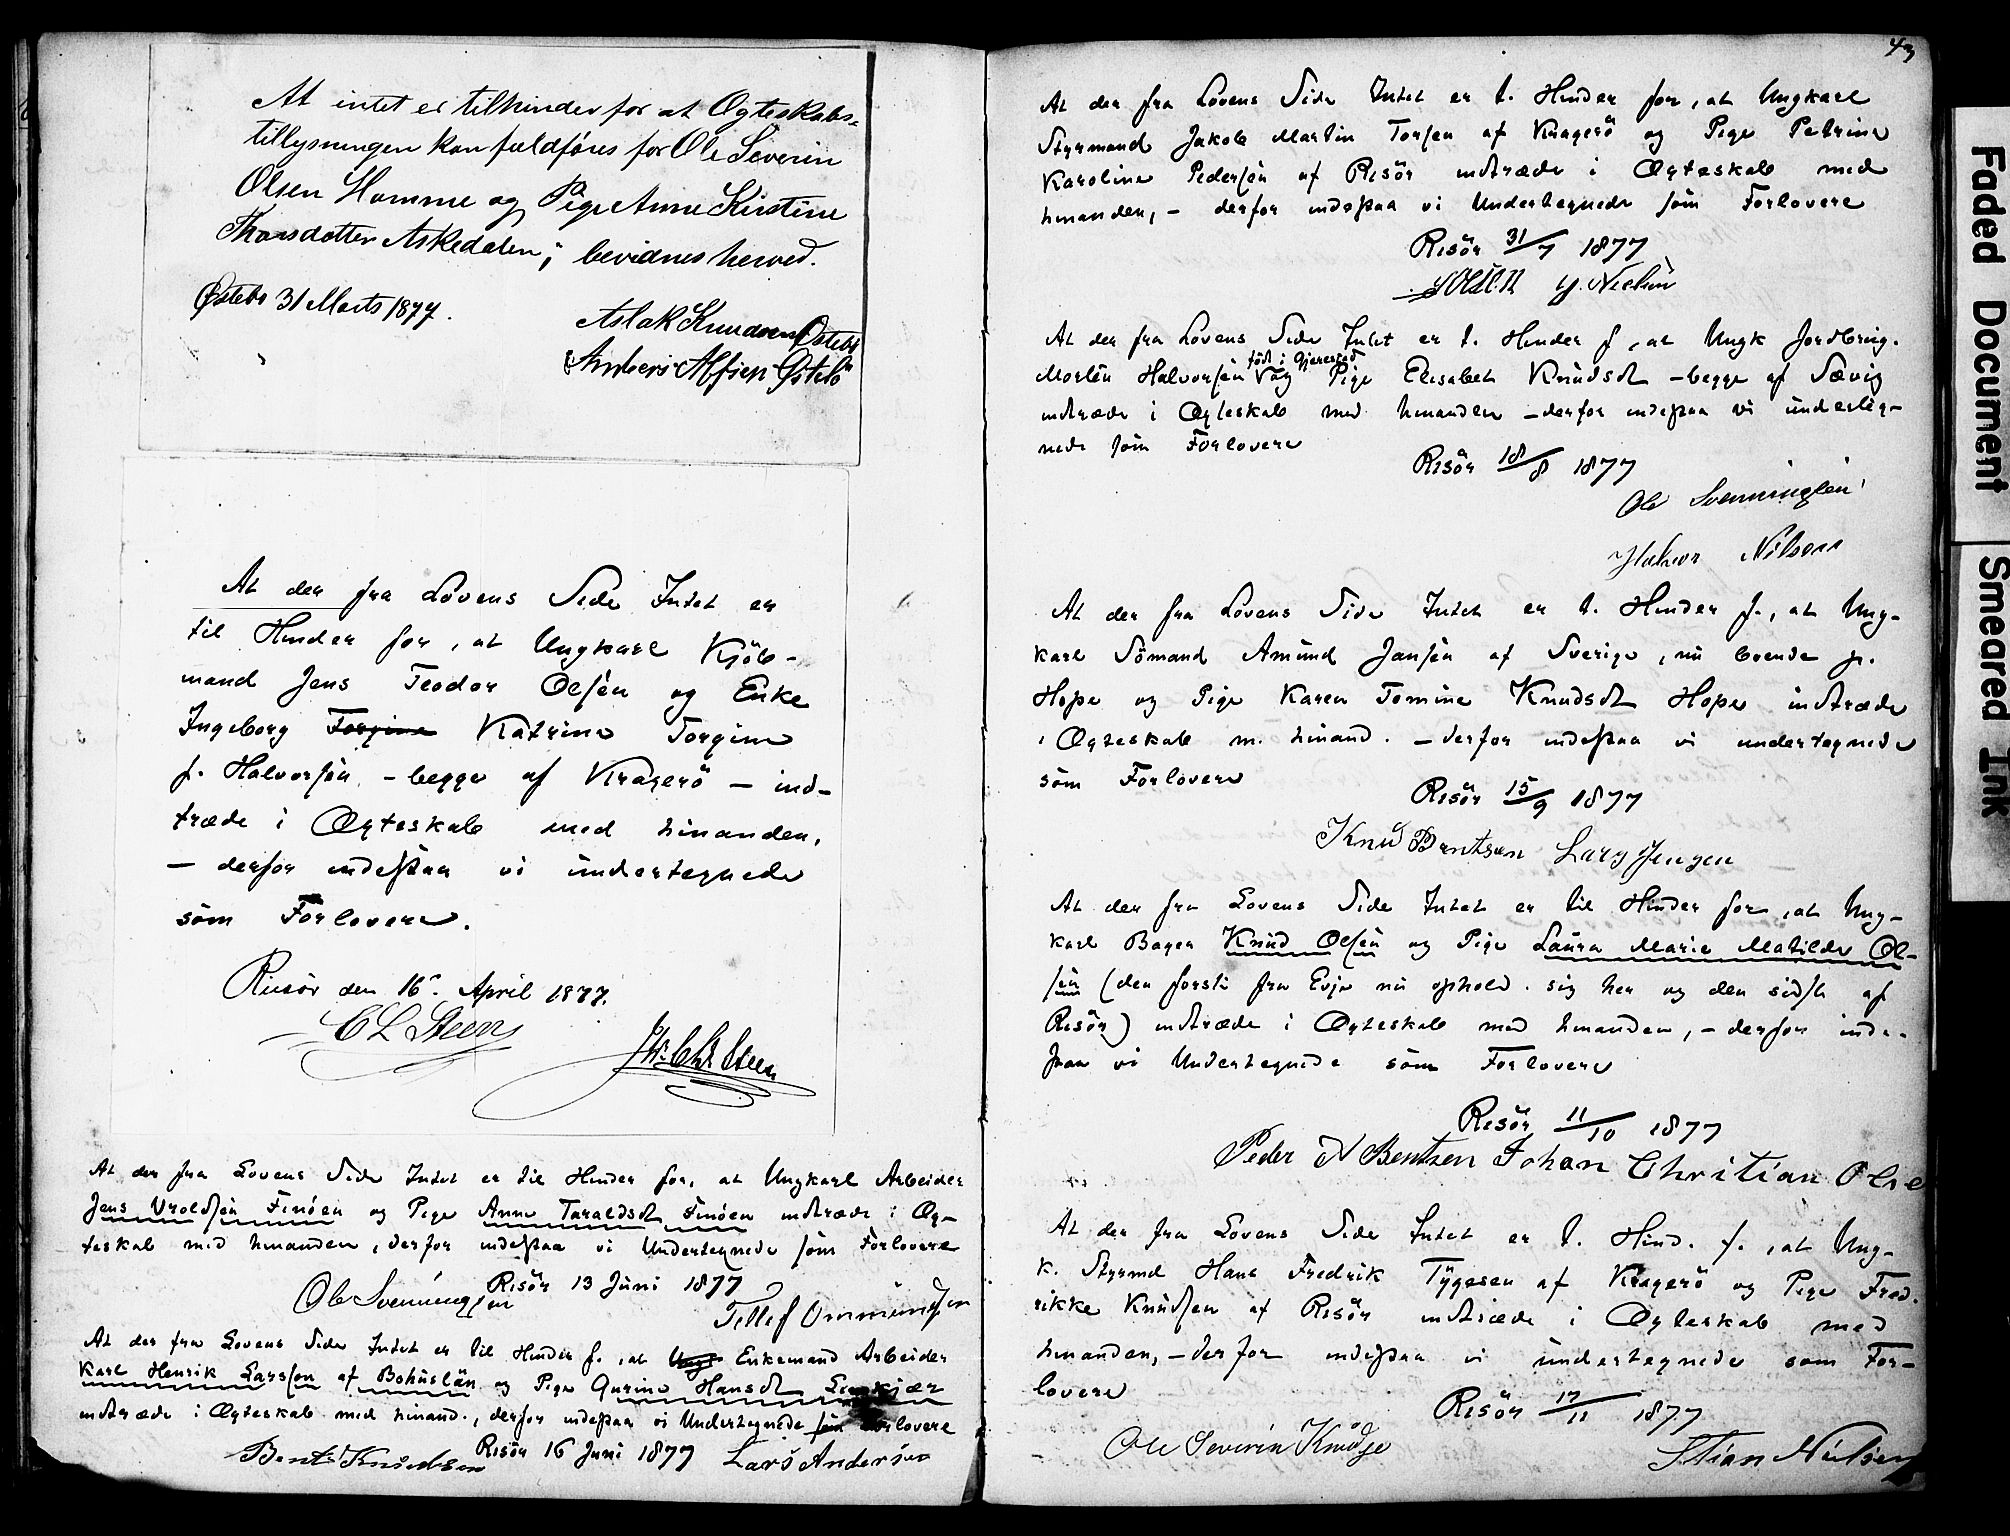 At intet er tilhinder for at Ægteskabs-
tillysningen kan fuldföres for Ole Severin
Olsen Homme og Pige Anne Kirstine
Thorsdatter Askedalen; bevidnes herved.
Østebø 31 Marts 1877.
Aslak Knudsen Østebø
Anders Alfsen Østebö
At der fra Lovens Side Intet er
til Hinder for, at Ungkarl Kjöb-
mand Jens Teodor Olsen og Enke
Ingeborg Torgine Katrine Torgine
f. Halvorsen - begge af Kragerö - ind-
træde i Ægteskab med hinanden,
- derfor indestaa vi undertegnede
som Forlovere.
Risör den 16. April 1877.
C L Steen
Chr Steen
At der fra Lovens Side Intet er til Hinder for, at Ungkarl Arbeider
Jens Uroldsen Finöen og Pige Anne Taraldsdt Finöen indtræde i Æg-
teskab med hinanden, derfor indestaa vi Undertegnede som Forlovere
Risör 13 Juni 1877
Ole Svenningsen
Tellef Ommundsen
At der fra Lovens Side Intet er til Hinder f., at Ungk Enkemand Arbeider
Karl Henrik Larsson af Bohuslän og Pige Gurine Hansdt
indtræde i Ægteskab med hinand., derfor indestaa vi Undertegnede som Forlovere
Risör 16 Juni 1877
Bent Knudsen
Lars Andersen
43
At der fra Lovens Side Intet er t. Hinder for, at Ungkarl
Styrmand Jakob Martin Torsen af Kragerö og Pige Petrine
Karoline Pedersen af Risör indtræde i Ægteskab med
hinanden, - derfor indestaa vi Undertegnede som Forlovere
Risör 31/7 1877
Nielsen
At der fra Lovens Side Intet er t. Hinder f, at Ungk Jordbrug.
födt i Gjerestad
Morten Halvorsen og Pige Elisabet Knudsdt - begge af Sævig
indtræde i Ægteskab med hinanden - derfor indestaa vi underteg-
nede som Forlovere
Risör 18/8 1877
Ole Svenningsen
Halvor Nilsen
At der fra Lovens Side Intet er t. Hinder f., at Ung-
karl Sömand Amund Jansen af Sverige, nu boende p.
Hope og Pige Karen Tomine Knudsdt Hope indtræde
i Ægteskab m. hinand. - derfor indestaa vi undertegnede
som Forlovere
Risör 15/9 1877
Knud Bentsen Lars Jensen
At der fra Lovens Side Intet er til Hinder for, at Ung-
karl Bager Knud Olsen og Pige Laura Marie Matilde Ol-
sen (den förste fra Evje nu ophold. sig her og den sidste af
Risör) indtræde i Ægteskab med hinanden, - derfor inde-
staa vi Undertegnede som Forlovere
Risör 11/10 1877
Peder N Bentzen Johan Christian Olse
At der fra Lovens Side Intet er t. Hind. f., at Ung-
k. Styrmd Hans Fredrik Tygesen af Kragerö og Pige Fred-
rikke Knudsen af Risör indtræde i Ægteskab med
hinanden, - derfor indestaa vi undertegnede som For-
lovere
Risör 17/11 1877
Ole Severin Knudsen
Stian Nielsen
Faded Document
Smeared Ink